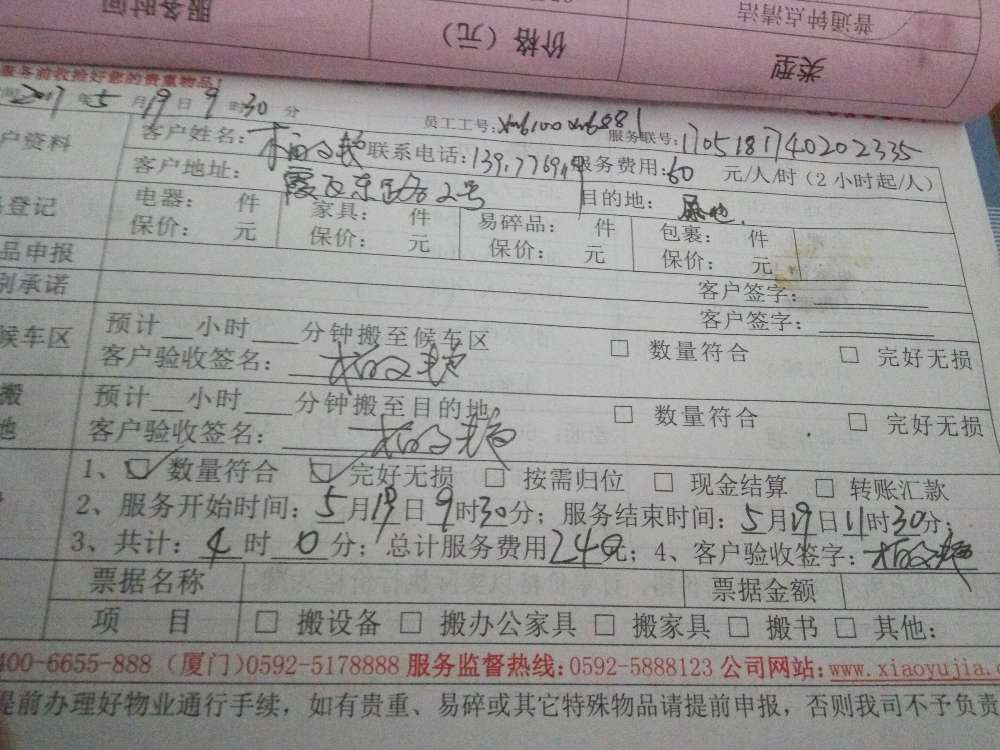 服务时间
价格（元）
普通钟点清洁
类型
服务前收拾好您的贵重物品！
2017年5月19日9时30分 员工工号： 服务联号：1705181740202335
户资料 客户姓名： 联系电话：139 服务费用：60 元/人/时（2小时起/人）
客户地址： 2号 目的地：
登记 电器： 件 家具： 件 易碎品： 件 包裹： 件
保价： 元 保价： 元 保价： 元 保价： 元
品申报 客户签字：
别承诺 客户签字：
候车区 预计___小时___分钟搬至候车区 □ 数量符合 □ 完好无损
客户验收签名：
搬 预计___小时___分钟搬至目的地 □ 数量符合 □ 完好无损
地 客户验收签名：
1、☑ 数量符合 ☑ 完好无损 □ 按需归位 □ 现金结算 □ 转账汇款
2、服务开始时间：5月19日9时30分；服务结束时间：5月19日11时30分；
3、共计：4时0分；总计服务费用240元；4、客户验收签字：
票据名称 票据金额
项 目 □ 搬设备 □ 搬办公家具 □ 搬家具 □ 搬书 □ 其他：
400-6655-888（厦门）0592-5178888 服务监督热线：0592-5888123 公司网站：www.xiaoyujia.c
提前办理好物业通行手续，如有贵重、易碎或其它特殊物品请提前申报，否则我司不予负责